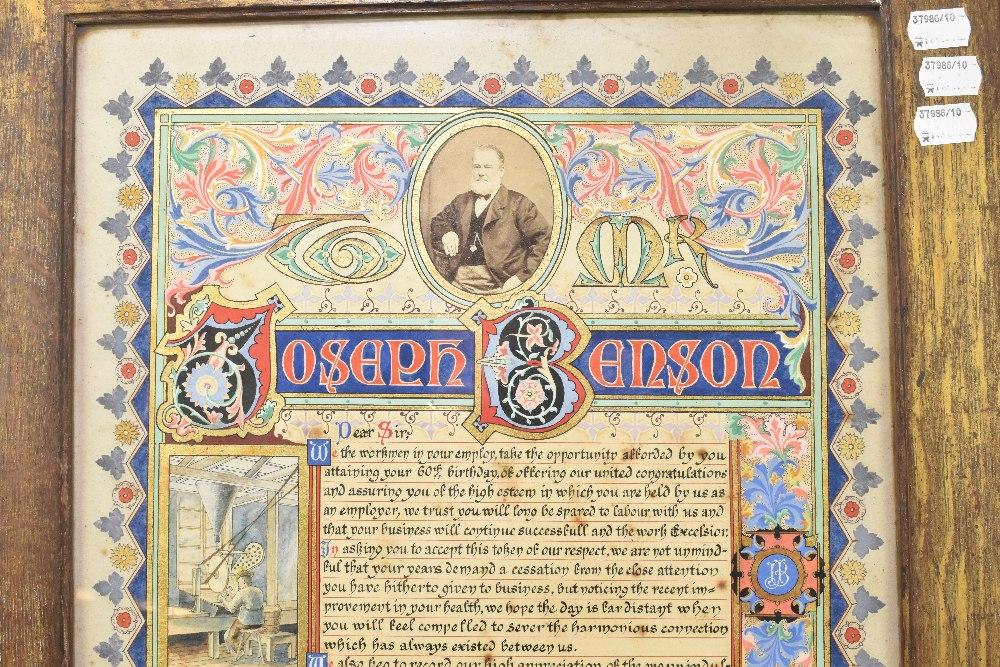 37986/10-
37986/10-
37986/10-
To Mr
Joseph Benson
Dear Sir,
We the workmen in your employ, take the opportunity afforded by you
attaining your 60th birthday, of offering our united congratulations
and assuring you of the high esteem in which you are held by us as
an employer, we trust you will long be spared to labour with us and
that your business will continue successfull and the work Excelsior.
In asking you to accept this token of our respect, we are not unmind-
ful that your years demand a cessation from the close attention
you have hitherto given to business, but noticing the recent im-
provement in your health, we hope the day is far distant when
you will feel compelled to sever the harmonious connection
which has always existed between us.
We also beg to record our high appreciation of the
JB